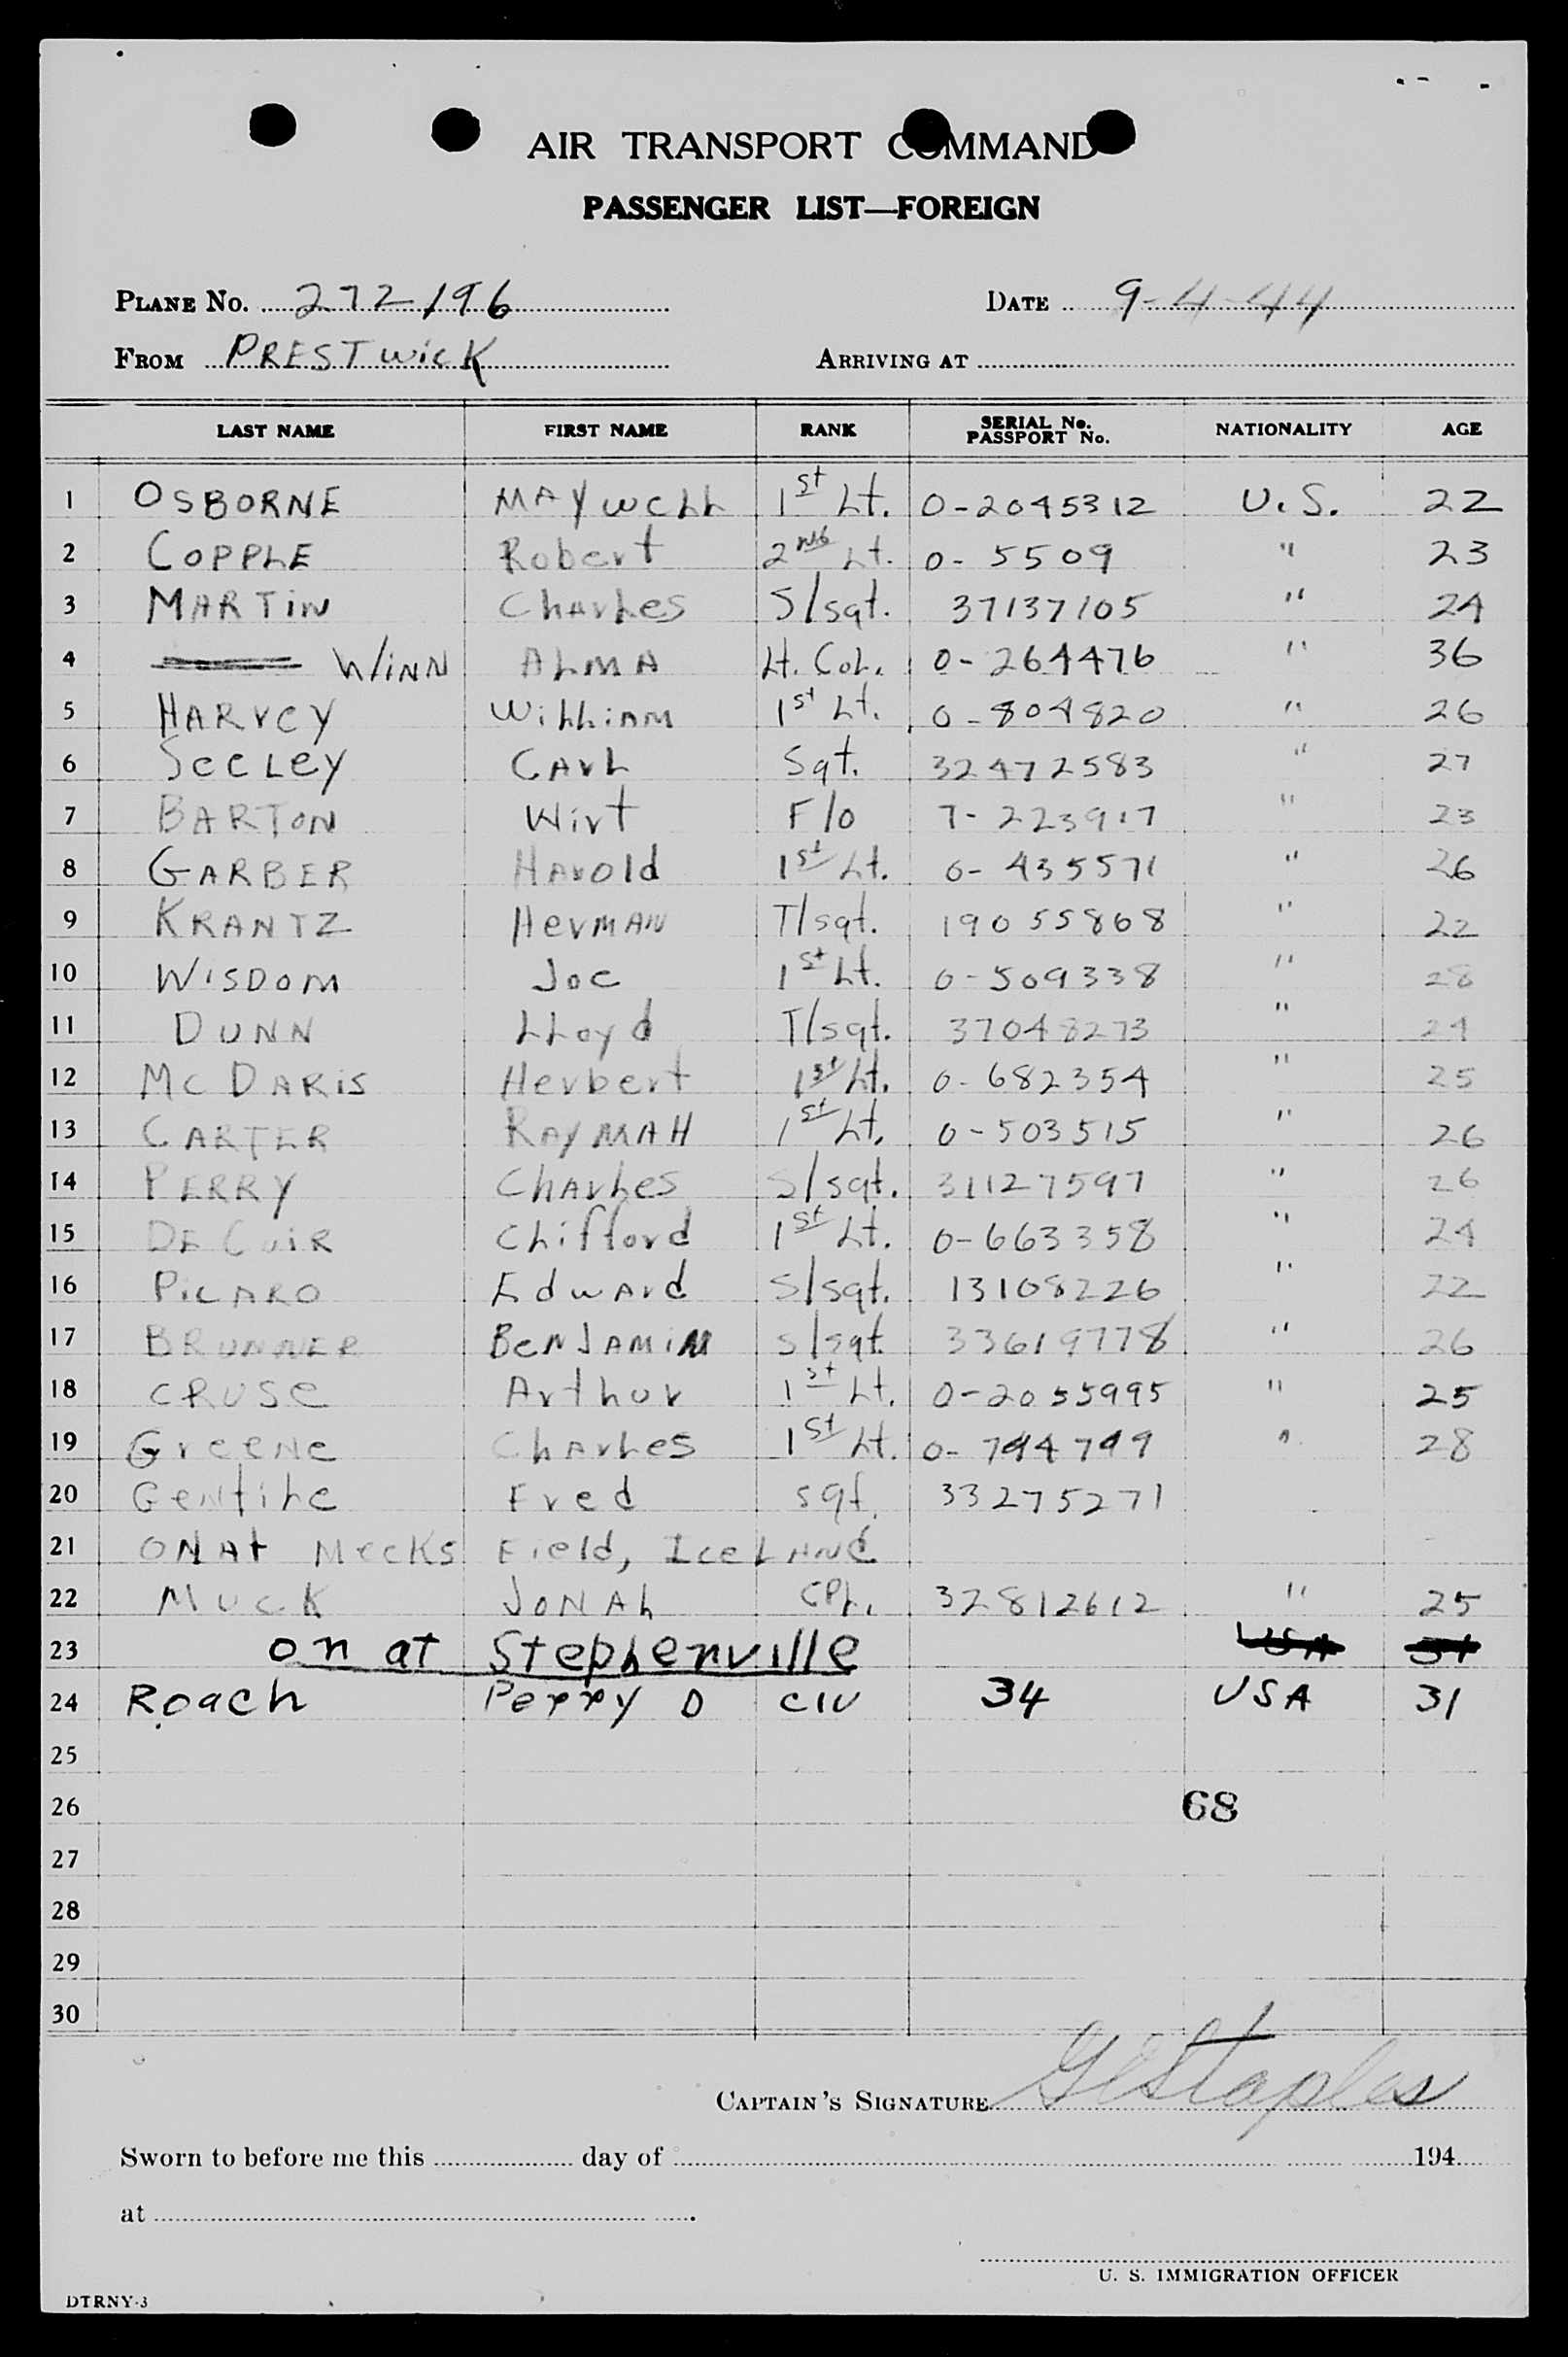 AIR TRANSPORT COMMAND
PASSENGER LIST—FOREIGN
PLANE No. 272196 DATE 9-4-44
FROM PRESTWICK ARRIVING AT
LAST NAME FIRST NAME RANK SERIAL No. PASSPORT No. NATIONALITY AGE
1 OSBORNE MAYWELL 1st Lt. 0-2045312 U.S. 22
2 COPPLE Robert 2nd Lt. 0-5509 " 23
3 MARTIN CHARLES S/sgt. 37137105 " 24
4 WINN ALMA Lt. COL. 0-264476 " 36
5 HARVEY WILLIAM 1st Lt. 0-804820 " 26
6 SEELEY CARL Sgt. 32472583 " 27
7 BARTON Wirt F/O T-223917 " 23
8 GARBER Harold 1st Lt. 0-435571 " 26
9 KRANTZ HerMAN T/sgt. 19055868 " 22
10 WISDOM Joe 1st Lt. 0-509338 " 28
11 DUNN LLoyd T/sgt. 37048273 " 24
12 MC DARIS Herbert 1st Lt. 0-682354 " 25
13 CARTER RAYMAH 1st Lt. 0-503515 " 26
14 PERRY CHARLES S/sgt. 31127597 " 26
15 DE CUIR CLifford 1st Lt. 0-663358 " 24
16 PICARO EdwArd S/sgt. 13108226 " 22
17 BRUNNER BENJAMIN S/sgt 33619778 " 26
18 CRUSE Arthur 1st Lt. 0-2055995 " 25
19 GreeNe CHARLES 1st Lt. 0-794799 " 28
20 GeNtiLe Fred sgt. 33275271
21 ON At MeeKs Field, IceLAND
22 MUCK JONAH CPL. 32812612 " 25
23 on at Stephenville
24 Roach Perry D CIV 34 USA 31
25
26 68
27
28
29
30
CAPTAIN'S SIGNATURE GEStaples
Sworn to before me this day of 194
at .
U. S. IMMIGRATION OFFICER
DTRNY-3